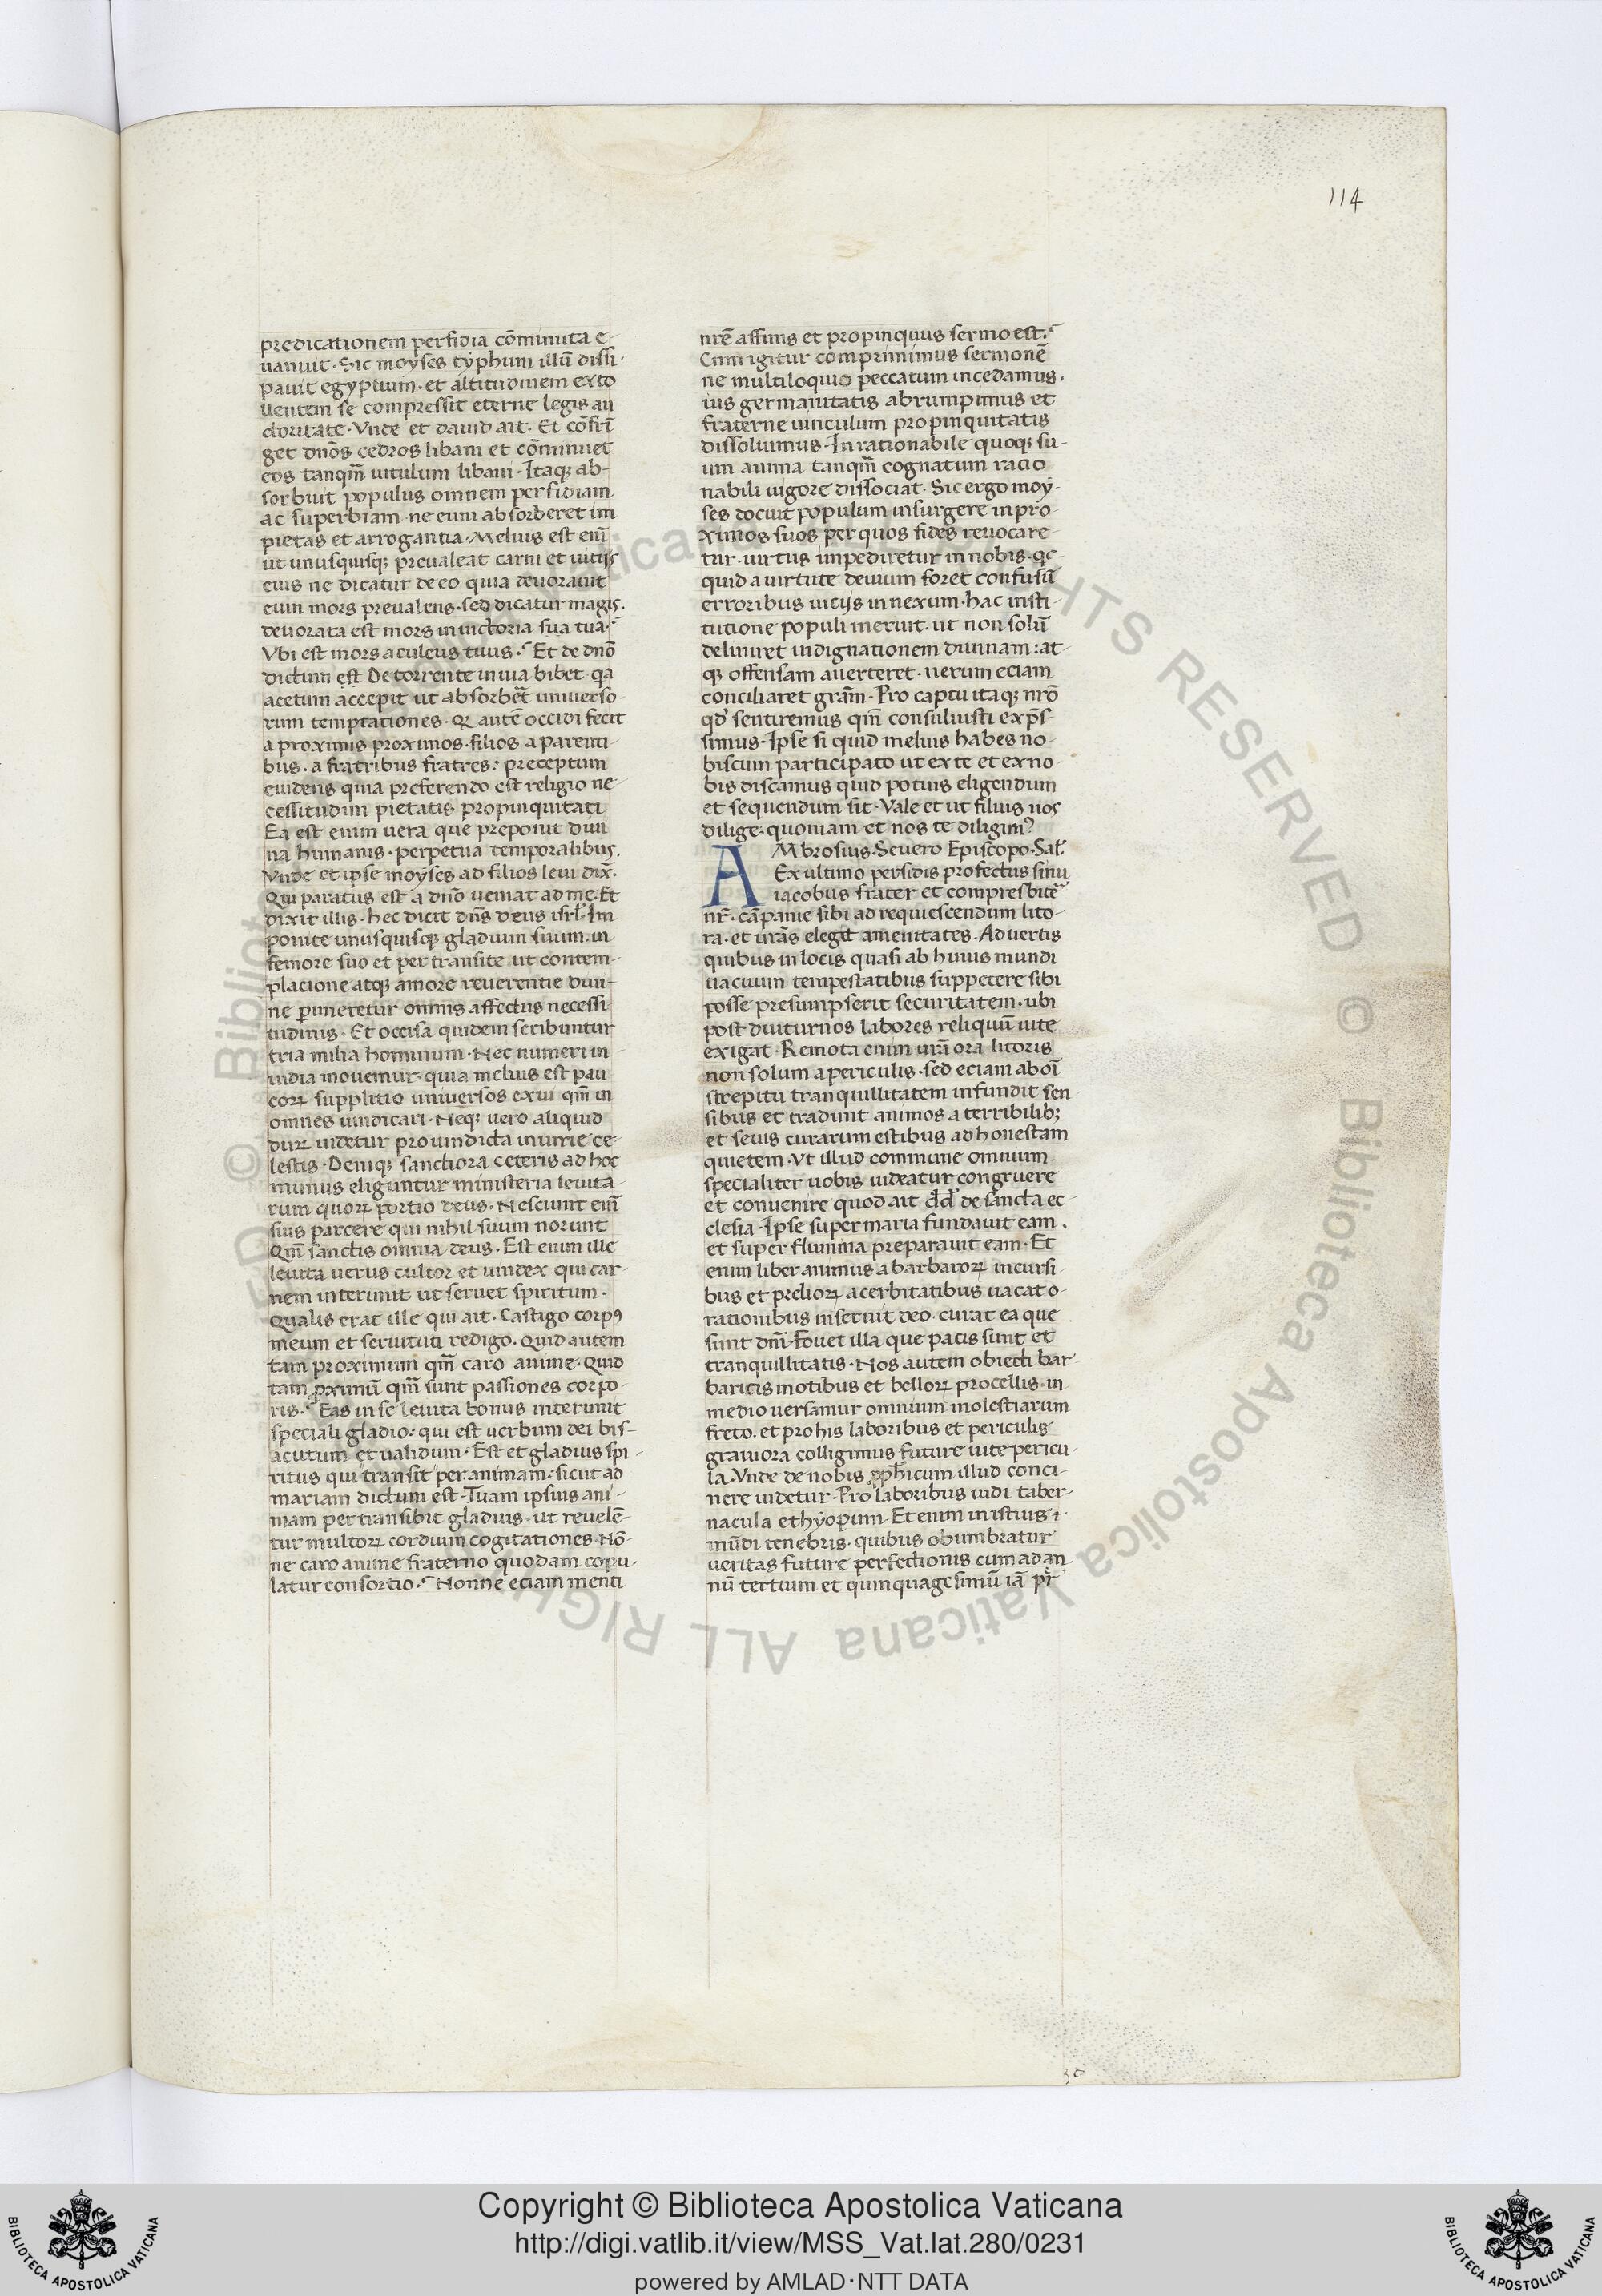 114
predicationem perfidia cōminuta e-
uanuit. Sic moyses typhum illū dissi-
pauit egyptium. et altitudinem exto
llentem se compressit eterne legis au
ctoritate. Vnde et dauid ait. Et cōfrī
get dn̄os cedros libani et cōminuet
eos tanqm̄ uitulum libani. Itaqꝫ ab-
sorbuit populus omnem perfidiam
ac superbiam ne eum absorberet im
pietas et arrogantia. Melius est enī
ut unusquisqꝫ preualeat carni et uitijs
eius ne dicatur de eo quia deuorauit
eum mors preualens. sed dicatur magis.
deuorata est mors in uictoria sua tua.
Vbi est mors aculeus tuus. Et de dn̄o
dictum est De torrente in uia bibet qa
acetum accepit ut absorbēt uniuerso
rum temptationes. Q autē occidi fecit
a proximis proximos. filios a parenti-
bus. a fratribus fratres: preceptum
euidens quia preferendo est religio ne-
cessitudini pietatis propinquitati
Ea est enim uera que preponit diui
na humanis. perpetua temporalibus.
Vnde et ipse moyses ad filios leui dix̄.
Qui paratus est a dn̄o ueniat ad me. Et
dixit illis. hec dicit dn̄s deus isrl̄. Im
ponite unusquisqꝫ gladium suum. in
femore suo et per transite ut contem-
placione atqꝫ amore reuerentie diui-
ne ꝑimeretur omnis affectus necessi
tudinis. Et occisa quidem scribuntur
tria milia hominum. Nec numeri in-
uidia mouemur. quia melius est pau
coꝝ supplitio uniuersos exui qm̄ in
omnes uindicari. Neqꝫ uero aliquid
duꝝ uidetur pro uindicta iniurie ce-
lestis. Deniqꝫ sanctiora ceteris ad hoc
munus eliguntur ministeria leuita-
rum quoꝝ portio deus. Nesciunt enī
suis parcere qui nihil suum norunt
Qm̄ sanctis omnia deus. Est enim ille
leuita uerus cultor et uindex qui car-
nem interimit ut seruet spiritum.
Qualis erat ille qui ait. Castigo corpꝰ
meum et seruituti redigo. Quid autem
tam proximum qm̄ caro anime. Quid
tam ꝓximū qm̄ sunt passiones corpo-
ris. Eas in se leuita bonus interimit
speciali gladio. qui est uerbum dei bis-
acutum et ualidum. Est et gladius spi-
ritus qui transit per animam. sicut ad
mariam dictum est. Tuam ipsius ani-
mam pertransibit gladius. ut reuelē-
tur multoꝝ cordium cogitationes. Nō-
ne caro anime fraterno quodam copu-
latur consortio. Nonne eciam menti
nrē affinis et propinquus sermo est.
Cum igitur comprimimus sermonē
ne multiloquio peccatum incedamus.
ius germanitatis abrumpimus et
fraterne uinculum propinquitatis
dissoluimus. In rationabile quoqꝫ su-
um anima tanqm̄ cognatum racio
nabili uigore dissociat. Sic ergo moy-
ses docuit populum insurgere in pro-
ximos suos per quos fides reuocare-
tur. uirtus impediretur in nobis. qc
quid a uirtute deuium foret confusū
erroribus uicijs innexum. hac insti-
tutione populi meruit. ut non solū
deliniret indignationem diuinam: at-
qꝫ offensam auerteret. uerum eciam
conciliaret gram̄. Pro captu itaqꝫ nrō
qd̄ sentiremus qm̄ consuluisti exp̄s-
simus. Ipse si quid melius habes no-
biscum participato ut ex te et ex no-
bis discamus quid potius eligendum
et sequendum sit. Vale et ut filius nos
dilige. quoniam et nos te diligimꝰ
AMbrosius. Seuero Episcopo. Sal̄.
Ex ultimo persidis profectus sinu
iacobus frater et compresbitē
nr̄. cāpanie sibi ad requiescendum lito-
ra. et urās elegit amenitates. Aduertis
quibus in locis quasi ab huius mundi
uacuum tempestatibus suppetere sibi
posse presumpserit securitatem. ubi
post diuturnos labores reliquū uite
exigat. Remota enim urā ora litoris
non solum a periculis. sed eciam ab oī
strepitu tranquillitatem infundit sen
sibus et tradunt animos a terribilibꝫ
et seuis curarum estibus ad honestam
quietem. Vt illud commune omnium
specialiter uobis uideatur congruere
et conuenire quod ait dd̄ de sancta ec-
clesia. Ipse super maria fundauit eam.
et super flumina preparauit eam. Et
enim liber animus a barbaroꝝ incursi-
bus et prelioꝝ acerbitatibus uacat o-
rationibus inseruit deo. curat ea que
sunt dn̄i. Fouet illa que pacis sunt et
tranquillitatis. Nos autem obiecti bar-
baricis motibus et belloꝝ procellis. in
medio uersamur omnium molestiarum
freto. et pro his laboribus et periculis
grauiora colligimus future uite pericu-
la. Vnde de nobis ꝓphicum illud conci-
nere uidetur. Pro laboribus uidi taber-
nacula ethyopum. Et enim in istius
mūdi tenebris. quibus obumbratur
ueritas future perfectionis cum ad an
nū tertium et quinquagesimū iā pr̄
Copyright © Biblioteca Apostolica Vaticana
http://digi.vatlib.it/view/MSS_Vat.lat.280/0231
powered by AMLAD·NTT DATA
BIBLIOTECA APOSTOLICA VATICANA
BIBLIOTECA APOSTOLICA VATICANA